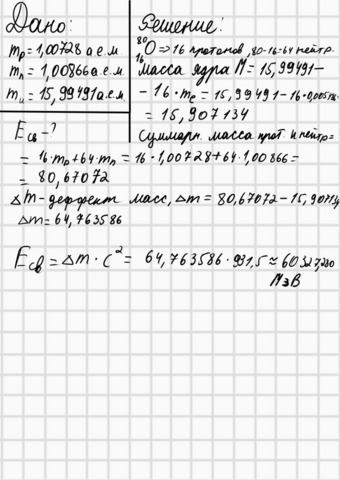 Дано:
mp = 1,00728 а.е.м.
mn = 1,00866 а.е.м.
mu = 15,99491 а.е.м.
Eсв - ?
Решение:
80 16 O => 16 протонов, 80-16=64 нейтр.
Масса ядра M = 15,99491 -
- 16 · me = 15,99491 - 16 ·
= 15,907134
Суммарн. масса прот. и нейтр =
= 16·mp + 64·mn = 16 · 1,00728 + 64 · 1,00866 =
= 80,67072
Δm - деффект масс, Δm = 80,67072 - 15,907134
Δm = 64,763586
Eсв = Δm · c² = 64,763586 · 931,5 ≈ 60327,280
МэВ